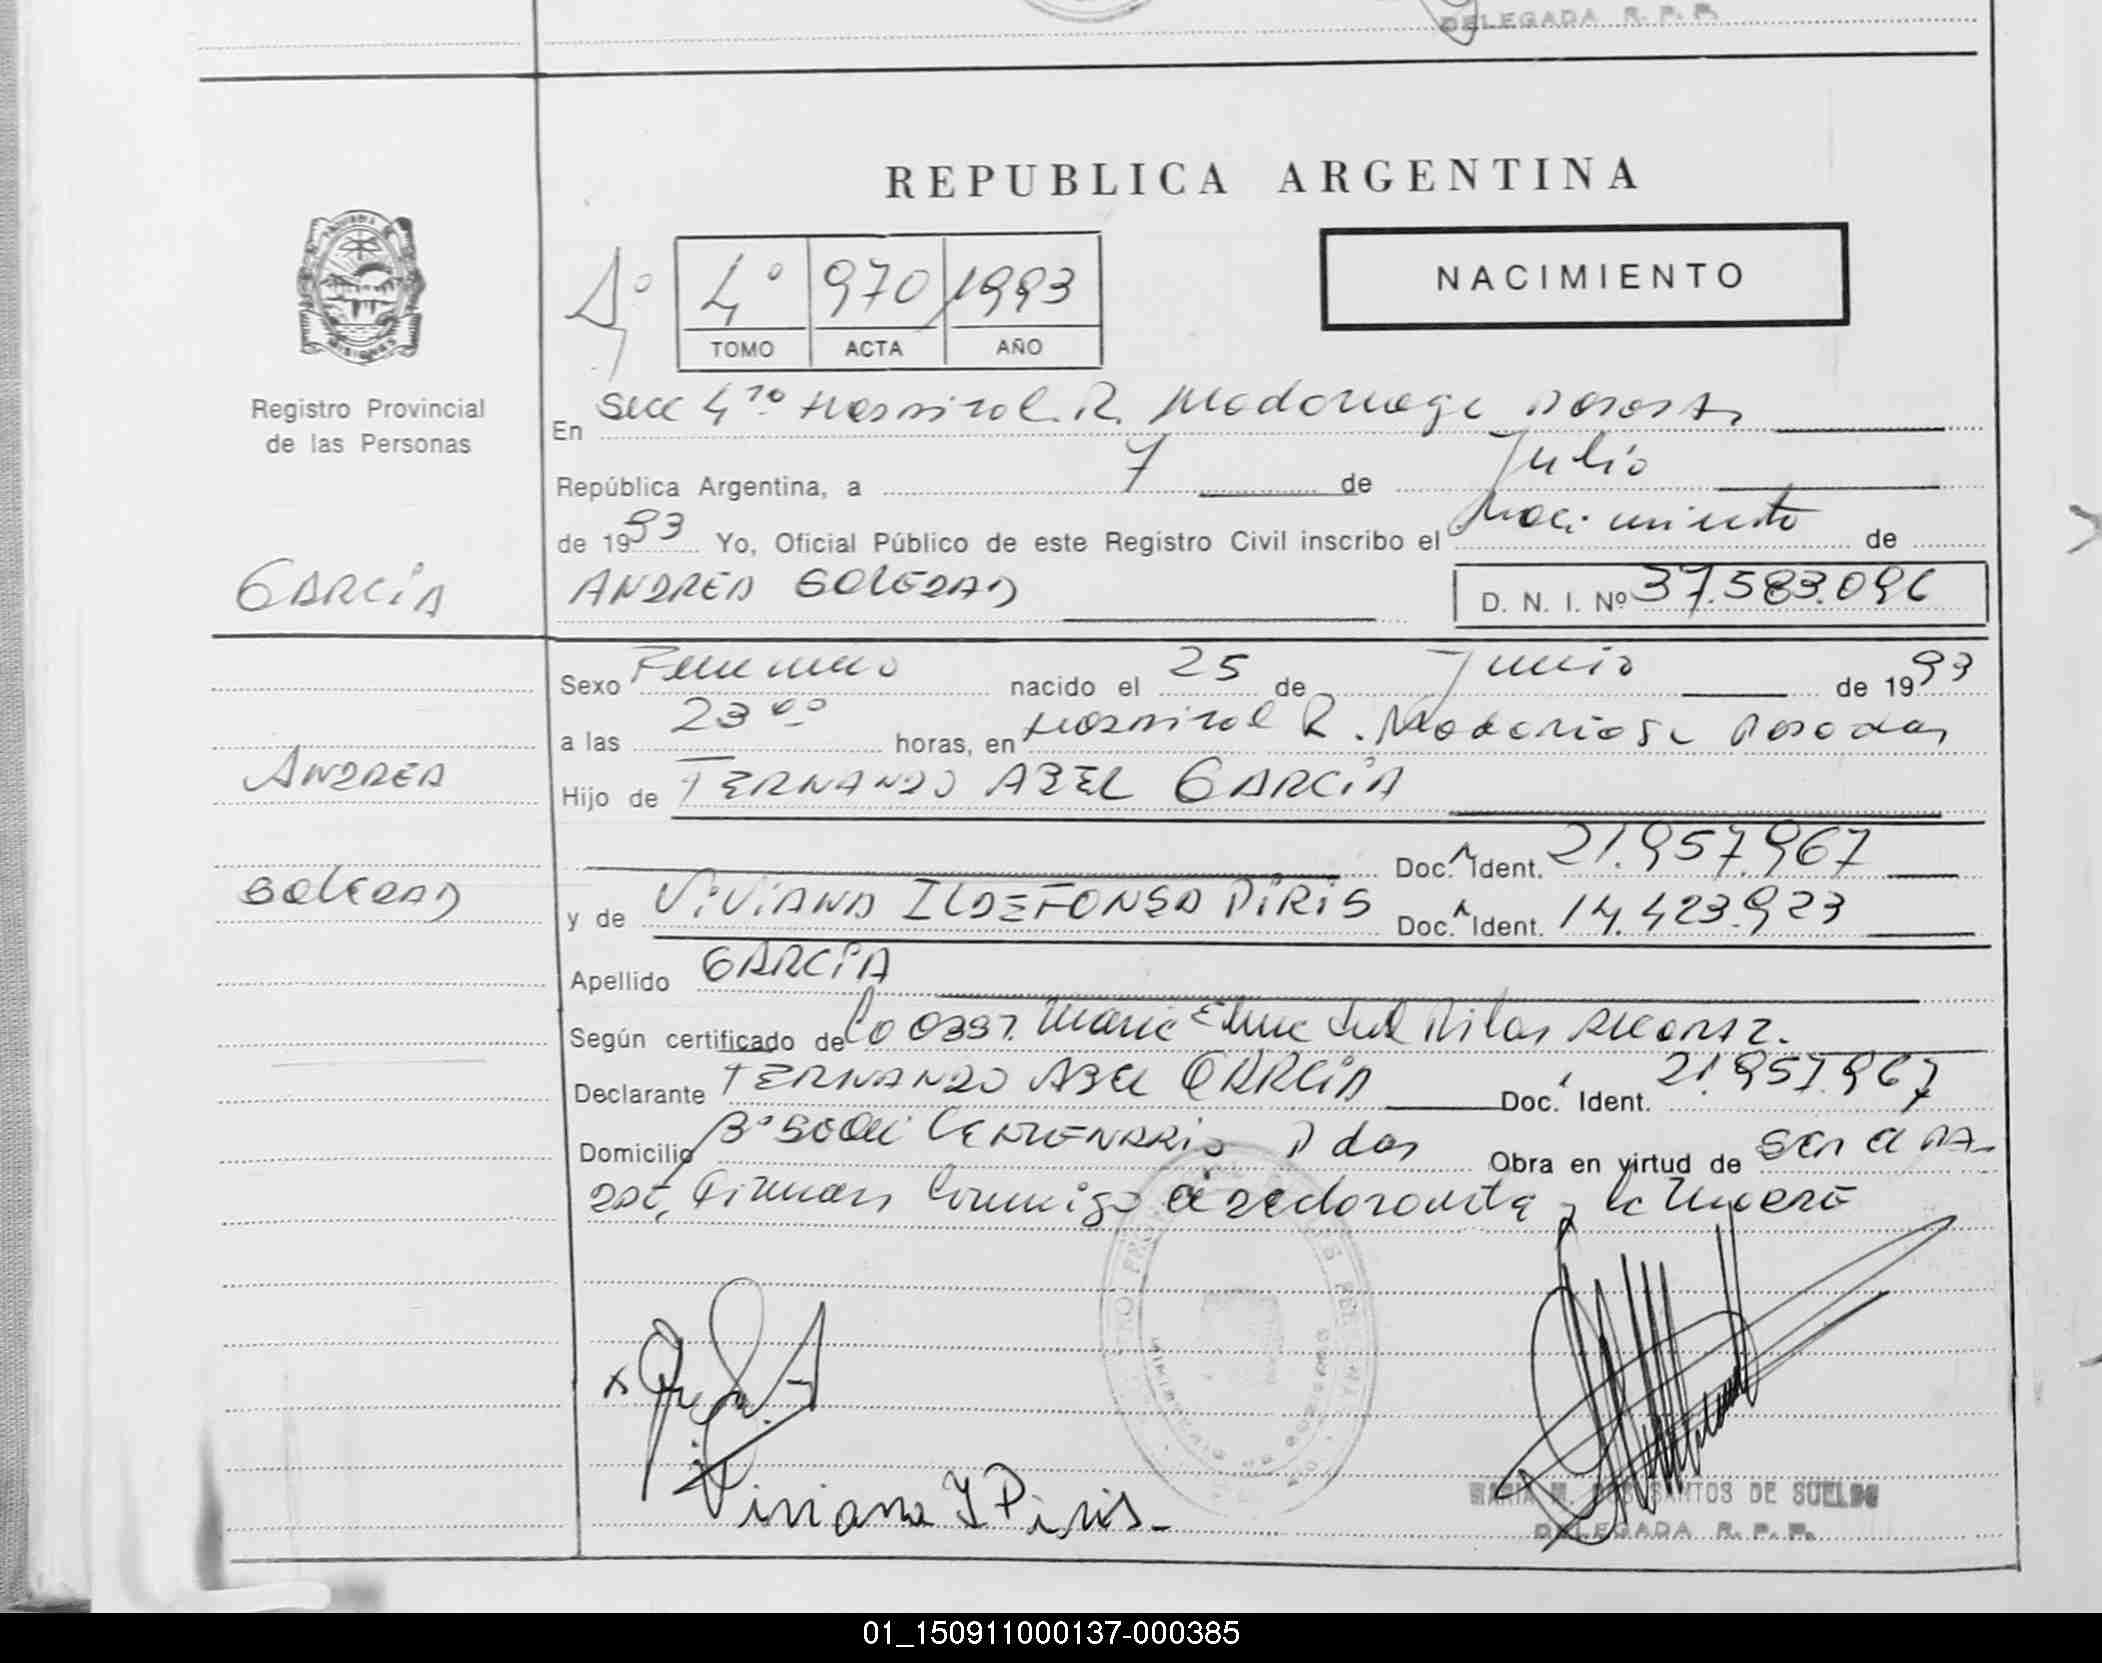 DELEGADA R. P. P.
REPUBLICA ARGENTINA
4º 970 1993
TOMO ACTA AÑO
NACIMIENTO
Registro Provincial
de las Personas
En Secc 4ta Hospital R. Madariaga Posadas
República Argentina, a 7 de Julio
de 1993 Yo, Oficial Público de este Registro Civil inscribo el Nacimiento de
GARCÍA
ANDREA SOLEDAD D. N. I. Nº 37.583.096
Sexo Femenino nacido el 25 de Junio de 1993
a las 23 horas, en Hospital R. Madariaga Posadas
ANDREA
Hijo de FERNANDO ABEL GARCÍA
Doc. Ident. 21.957.967
SOLEDAD
y de VIVIANA ILDEFONSA PIRIS Doc. Ident. 14.423.923
Apellido GARCÍA
Según certificado de Maria del Pilar
Declarante FERNANDO ABEL GARCÍA Doc. Ident. 21.957.967
Domicilio Bº CENTENARIO Pdas Obra en virtud de Ser el PA-
DRE, Firman Conmigo el declarante y la Madre
Viviana I Piris.-
MARIA M. DOS SANTOS DE SUELDO
DELEGADA R. P. P.
01_150911000137-000385